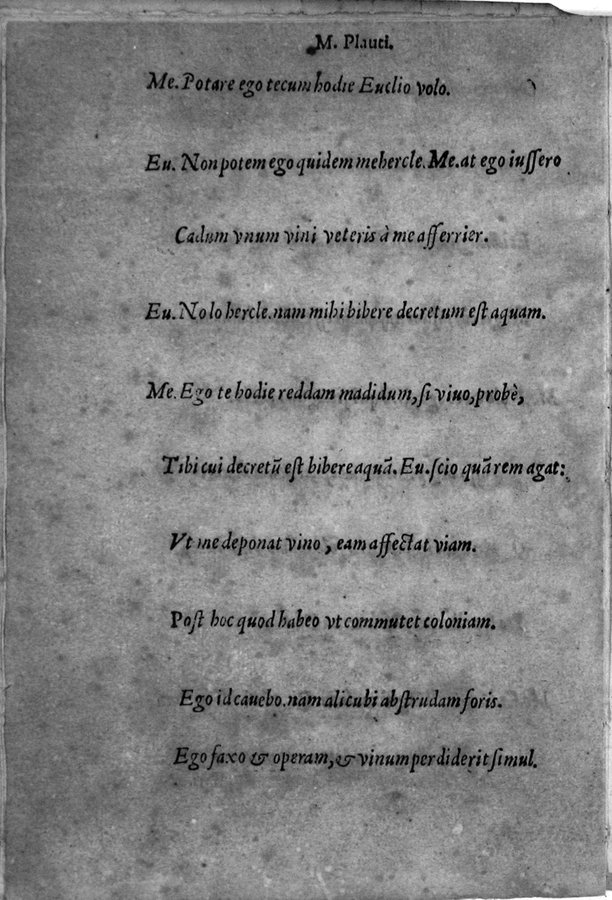 M. Plauti.
Me. Potare ego tecum hodie Euclio volo.
Eu. Non potem ego quidem mehercle. Me. at ego iuſſero
Cadum vnum vini veteris à me afferrier.
Eu. Nolo hercle. nam mihi bibere decretum eſt aquam.
Me. Ego te hodie reddam madidum, ſi viuo, probè,
Tibi cui decretū eſt bibere aquā. Eu. ſcio quā rem agat:
Vt me deponat vino, eam affectat viam.
Poſt hoc quod habeo vt commutet coloniam.
Ego id cauebo. nam alicubi abſtrudam foris.
Ego faxo & operam, & vinum perdiderit ſimul.